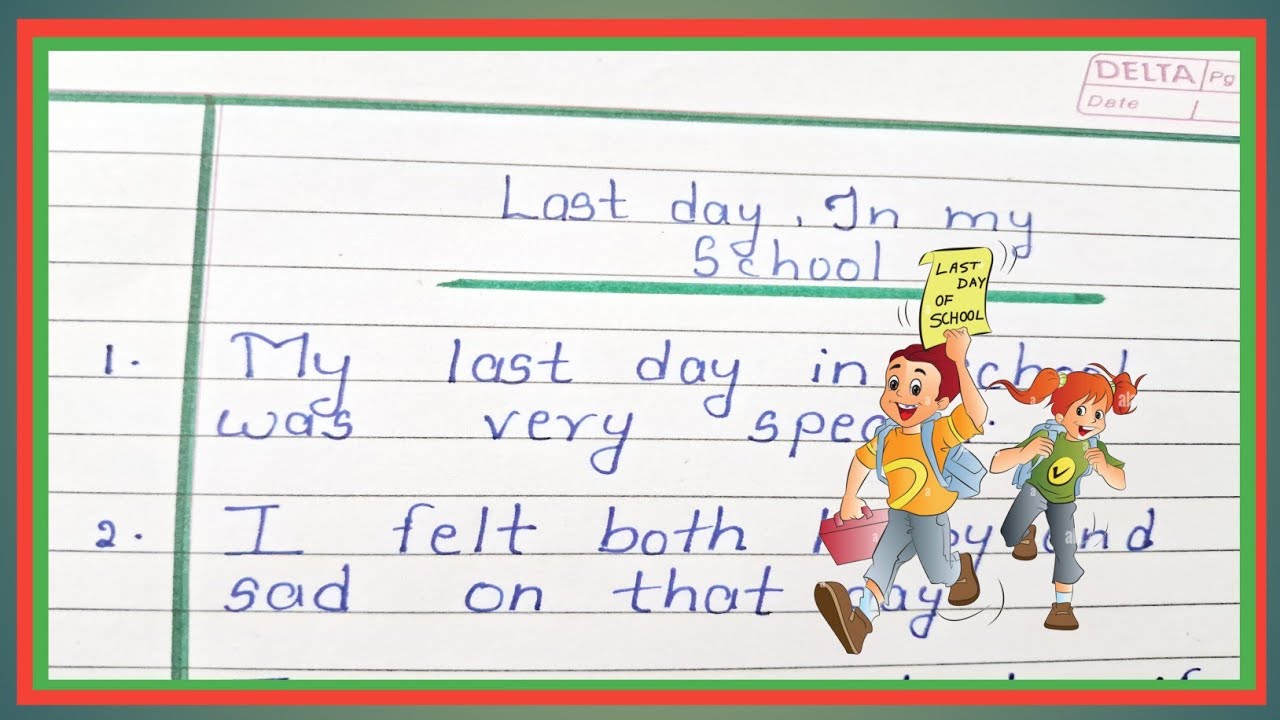 DELTA Pg
Date
Last day, In my
School
LAST
DAY
OF
SCHOOL
1. My last day in school
was very special.
2. I felt both happy and
sad on that day